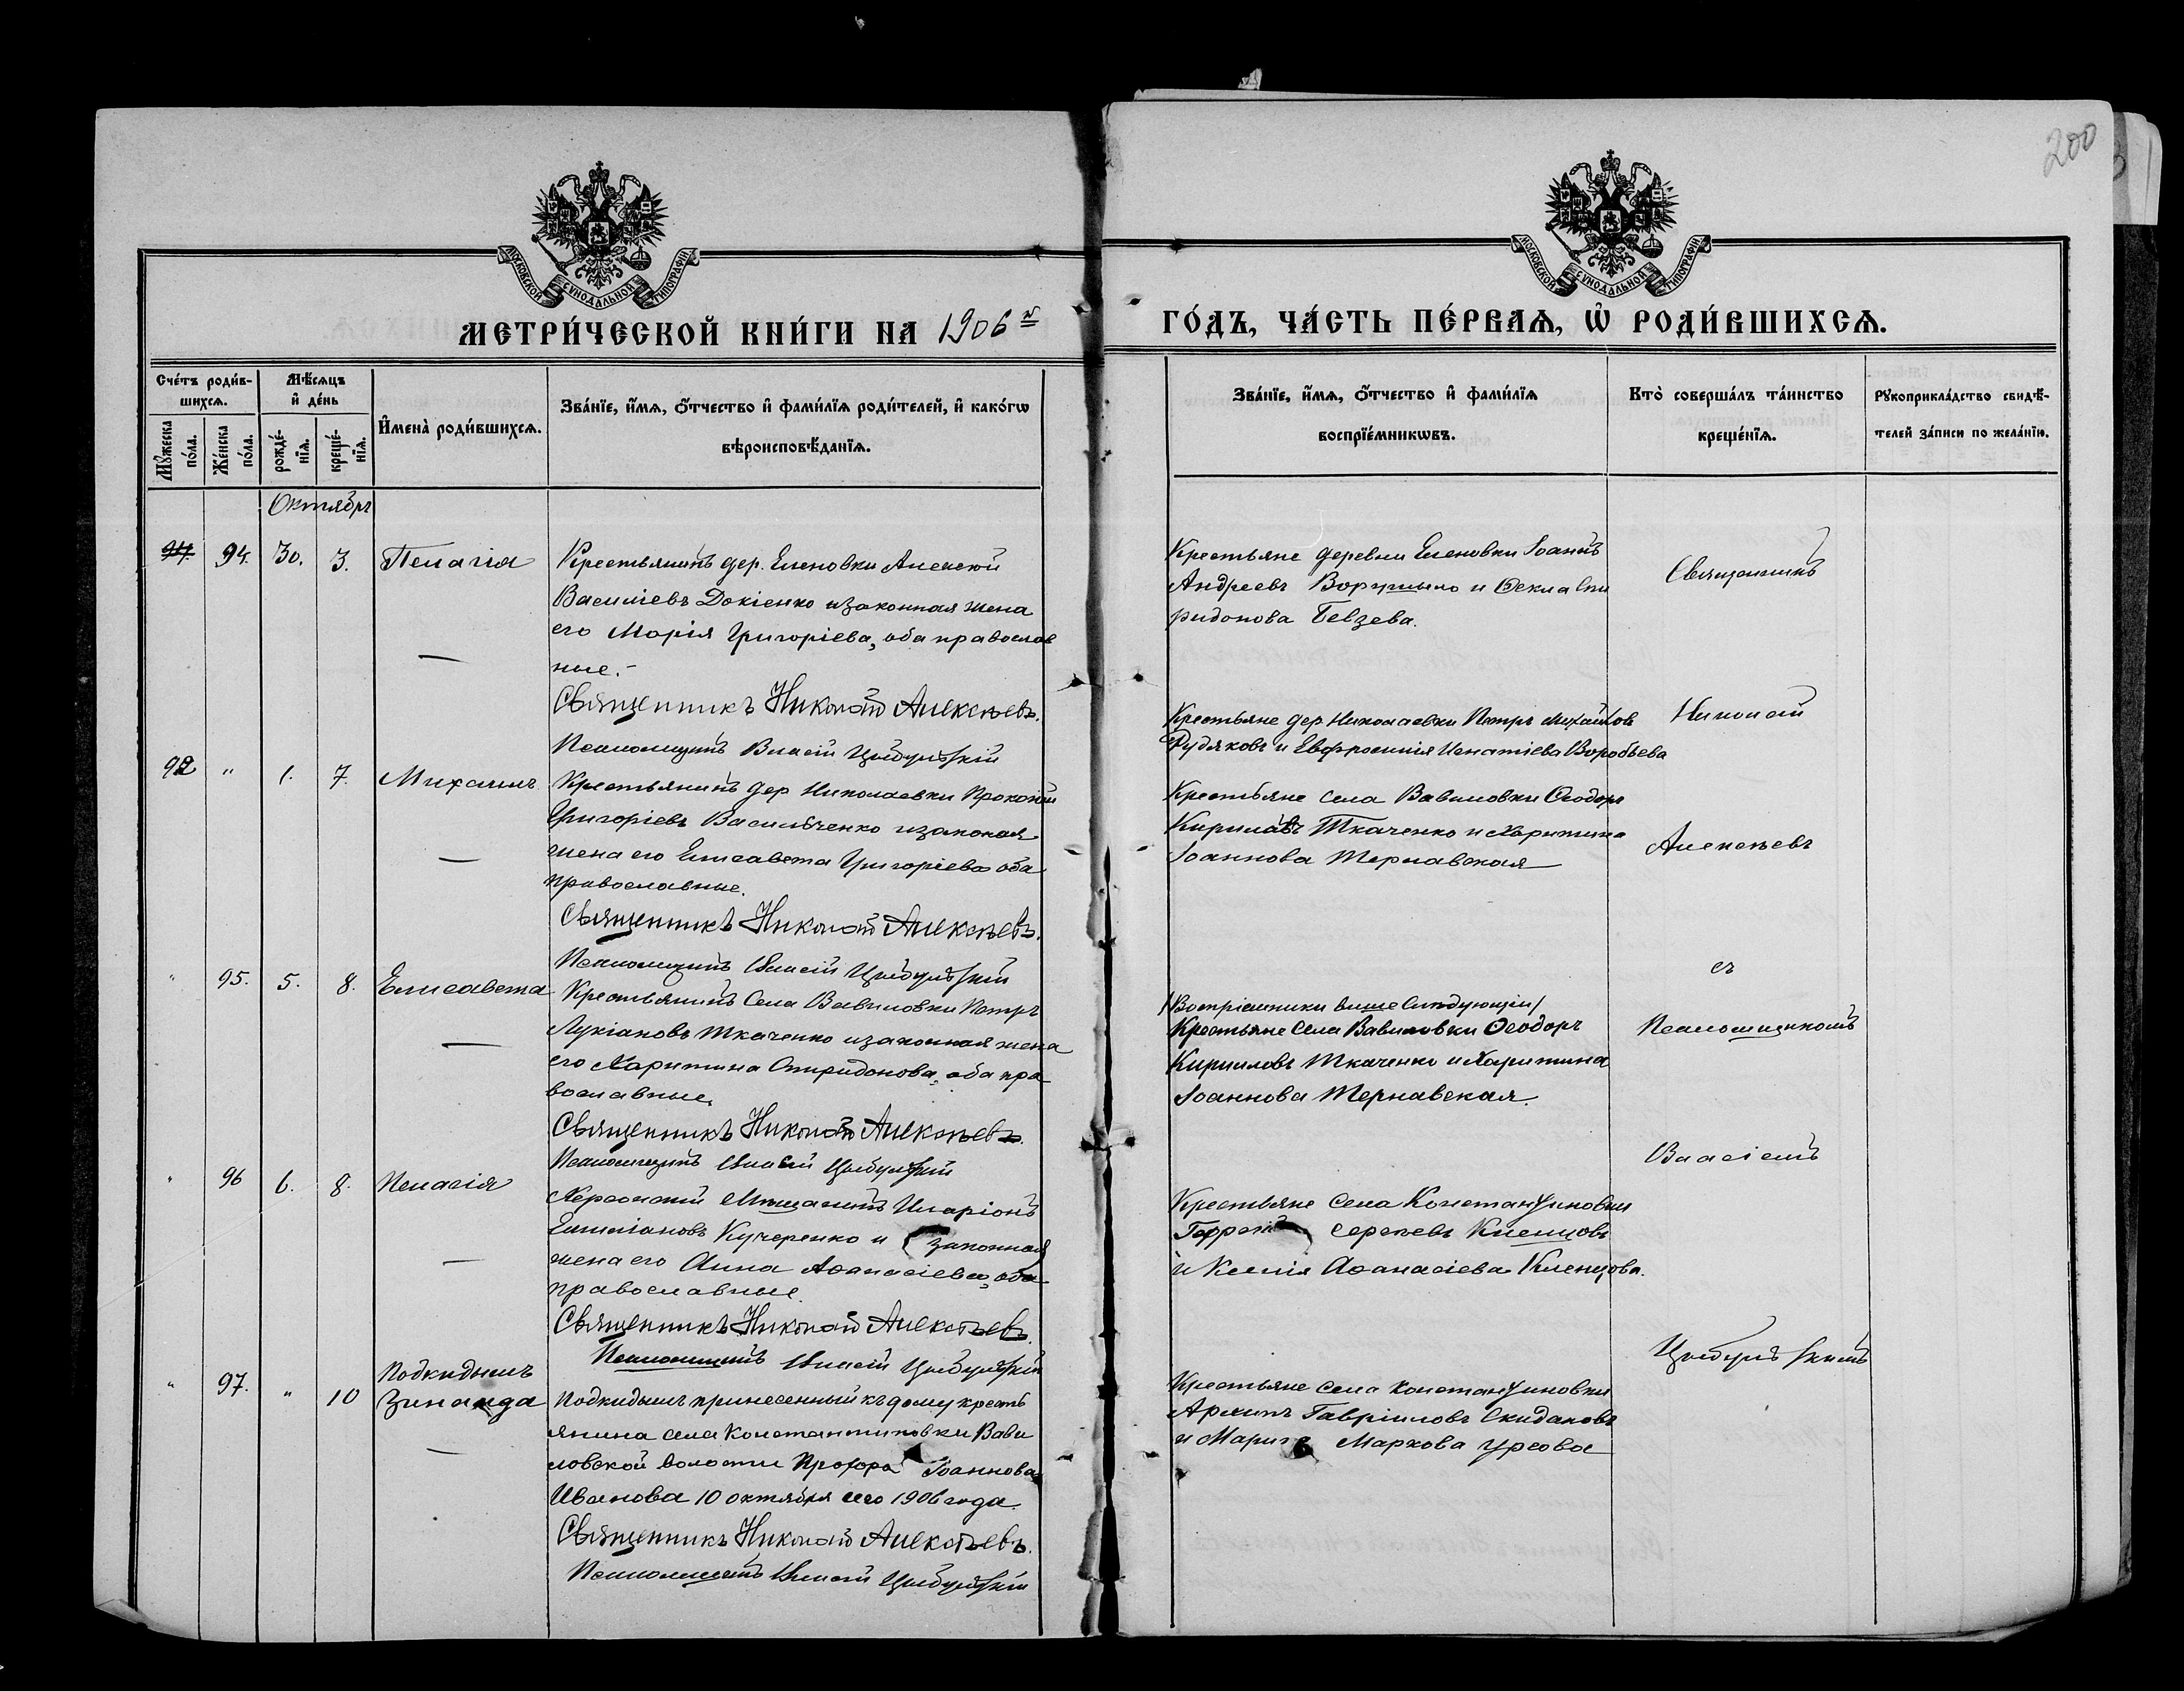 200
МОСКОВСКОЙ СѴНОДАЛЬНОЙ ТИПОГРАФІИ
МОСКОВСКОЙ СѴНОДАЛЬНОЙ ТИПОГРАФІИ
МЕТРИ́ЧЕСКОЙ КНИ́ГИ НА 1906 й
ГО́ДЪ, ЧА́СТЬ ПЕ́РВАѦ, Ѡ҆ РОДИ́ВШИХСѦ.
Сче́тъ роди́в-
шихсѧ.
Мꙋ́жеска по́ла.
Же́нска по́ла.
Мѣ́сѧцъ
и҆ де́нь
рожде́-
нїѧ.
креще́-
нїѧ.
И҆мена̀ роди́вшихсѧ.
Зва́нїе, и҆́мѧ, ѻ҆́тчество и҆ фами́лїѧ роди́телей, и҆ како́гѡ
вѣроисповѣ́данїѧ.
Зва́нїе, и҆́мѧ, ѻ҆́тчество и҆ фами́лїѧ
воспрїе́мникѡвъ.
Кто̀ соверша́лъ та́инство
креще́нїѧ.
Рꙋкоприкла́дство свидѣ́-
телей за́писи по жела́нїю.
Октябрь
94. 30. 3. Пелагія
Крестьянинъ дер. Еленовки Алексей
Василіевъ Докіенко и законная жена
его Марія Григоріева, оба православ
ные.-
Священникъ Николай Алексѣевъ.
Псаломщикъ Власій Цыбульскій
Крестьяне деревни Еленовки Іоаннъ
Андреевъ и Ѳекла Спи
ридонова Бевзева.
Священникъ
92 " 1. 7. Михаилъ
Крестьянинъ дер Николаевки Прокопій
Григоріевъ Васильченко и законая
жена его Елисавета Григоріева оба
православные.
Священникъ Николай Алексѣевъ.
Псаломщикъ Власій Цыбульскій
Крестьяне дер. Николаевки Петръ Михайловъ
Рудяковъ и Евфросинія Игнатіева Воробьева
Крестьяне села Вавиловки Ѳеодоръ
Кириловъ Ткаченко и Харитина
Іоаннова Тернавская
Николай
Алексѣевъ
" 95. 5. 8. Елисавета
Крестьянинъ Села Вавиловки Петръ
Лукіановъ Ткаченко и законная жена
его Харитина Спиридонова, оба пра
вославные.
Священникъ Николай Алексѣевъ.
Псаломщикъ Власій Цыбульскій
/Воспріемники выше слѣдующіи/
Крестьяне Села Вавиловки Ѳеодоръ
Кирилловъ Ткаченко и Харитина
Іоаннова Тернавская.
съ
Псаломщикомъ
" 96 6. 8. Пелагія
Херсонскій Мѣщанинъ Иларіонъ
Емиліановъ Кучеренко и законная
жена его Анна Аѳанасіева, оба
православные.
Священникъ Николай Алексѣевъ.
Псаломщикъ Власій Цыбульскій
Крестьяне Села Константиновки
Сергѣевъ Кленцовъ
и Ксенія Аѳанасіева Кленцова.
Власіемъ
" 97. " 10
Подкидышъ
Зинаида
Подкидышъ принесенный къ дому кресть
янина села Константиновки Вави
ловской волости Прохора Іоаннова
Иванова 10 октября сего 1906 года.
Священникъ Николай Алексѣевъ.
Псаломщикъ Власій Цыбульскій
Крестьяне села Константиновки
Архипъ Гавріиловъ Скидановъ
и Марія Маркова Урсова
Цыбульскимъ